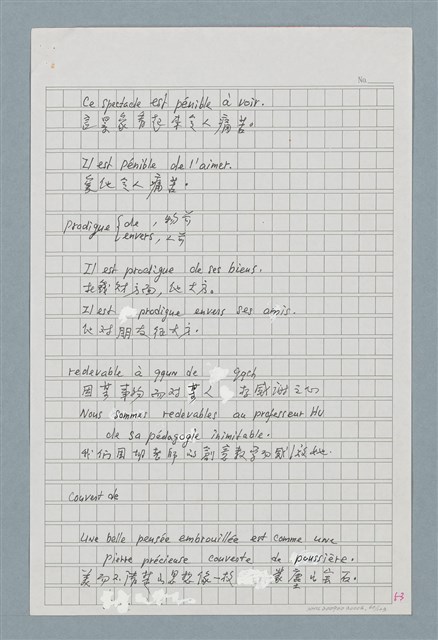 No.
Ce spectacle est pénible à voir.
這景象看起來令人痛苦。
Il est pénible de l'aimer.
愛他令人痛苦。
prodigue { de , 物
envers, 人
Il est prodigue de ses biens.
在錢財方面，他大方。
Il est prodigue envers ses amis.
他對朋友很大方。
redevable à qqun de qqch
因某事物而對某人 存感謝之心
Nous sommes redevables au professeur Hu
de sa pédagogie inimitable.
我們因胡老師的創意教學而感激她.
Couvert de
Une belle pensée embrouillée est comme une
pierre précieuse couverte de poussière.
美而不清楚的思想像一枚 蒙塵的寶石。
53